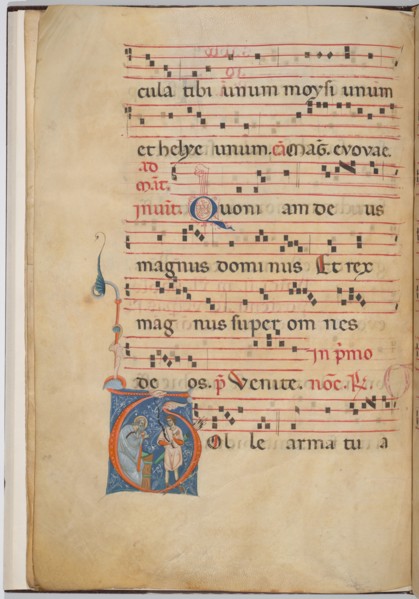 cula tibi unum moysi unum
et helye unum. cā mag̃. evovae.
ad
mat̃.
invit̃. Quoni am de us
magnus domi nus Et rex
mag nus super om nes
in p̄mo
de os. p̃ Venite. noc̃. R̃.
Tol le arma tu a